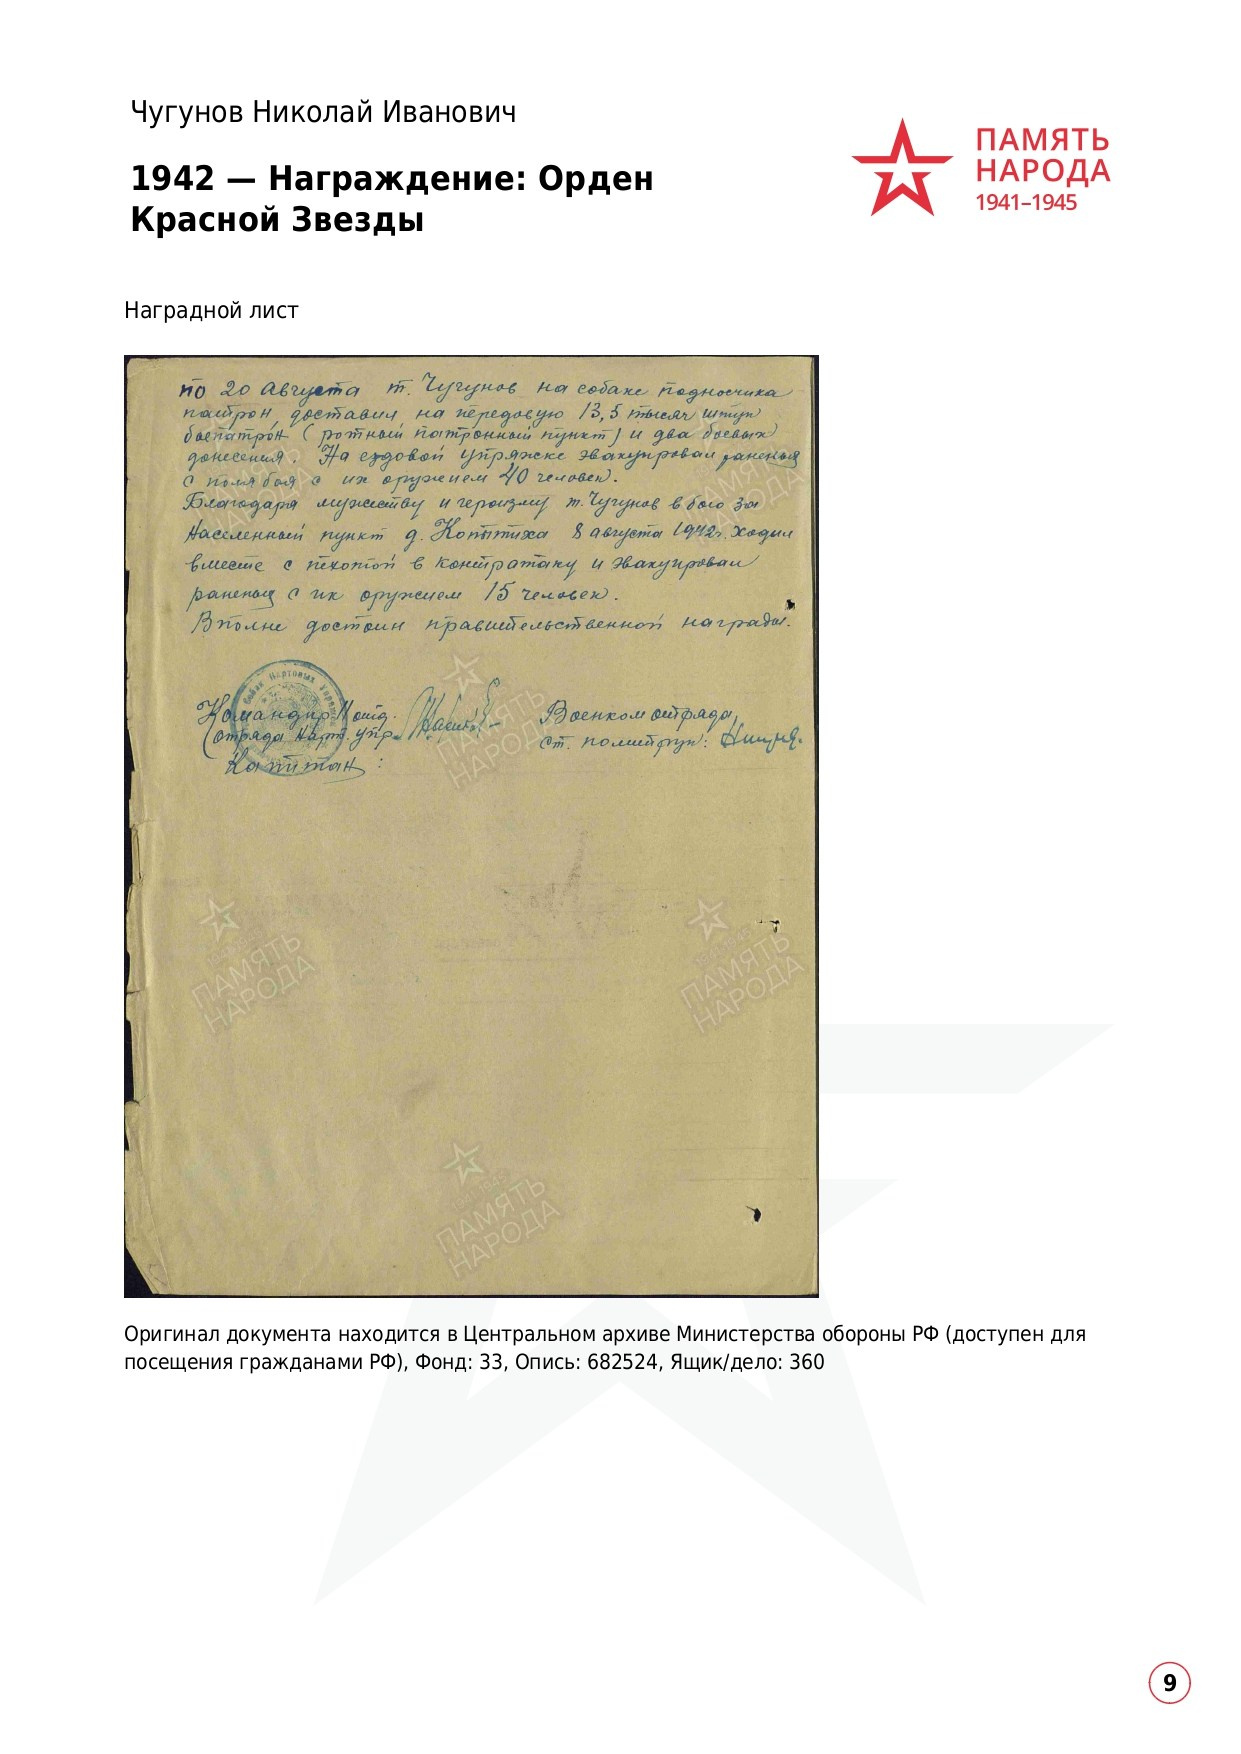 Чугунов Николай Иванович
1942 — Награждение: Орден
Красной Звезды
ПАМЯТЬ
НАРОДА
1941–1945
Наградной лист
по 20 августа т. Чугунов на собаке подносчика
патрон доставил на передовую 13,5 тысяч штук
боепатрон (ротный патронный пункт) и два боевых
донесения. На ездовой упряжке эвакуировал раненых
с поля боя с их оружием 40 человек.
Благодаря мужеству и героизму т. Чугунов в бою за
населенный пункт д. Коптиха 8 августа 1942г. ходил
вместе с пехотой в контратаку и эвакуировал
раненых с их оружием 15 человек.
Вполне достоин правительственной награды.
Командир отд. Военком отряда,
отряда Нарт. упр. ст. политрук:
Капитан :
ПАМЯТЬ
НАРОДА
ПАМЯТЬ
НАРОДА
ПАМЯТЬ
НАРОДА
ПАМЯТЬ
НАРОДА
Оригинал документа находится в Центральном архиве Министерства обороны РФ (доступен для
посещения гражданами РФ), Фонд: 33, Опись: 682524, Ящик/дело: 360
9